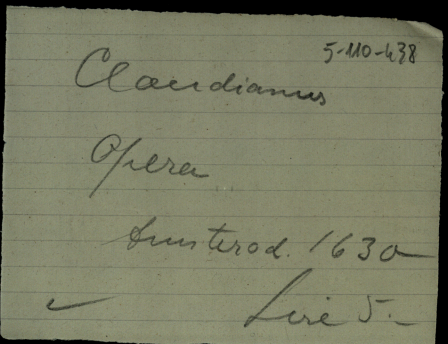 5-110-438
Claudianus
Opera
Amsterod. 1630
Lire 5.-